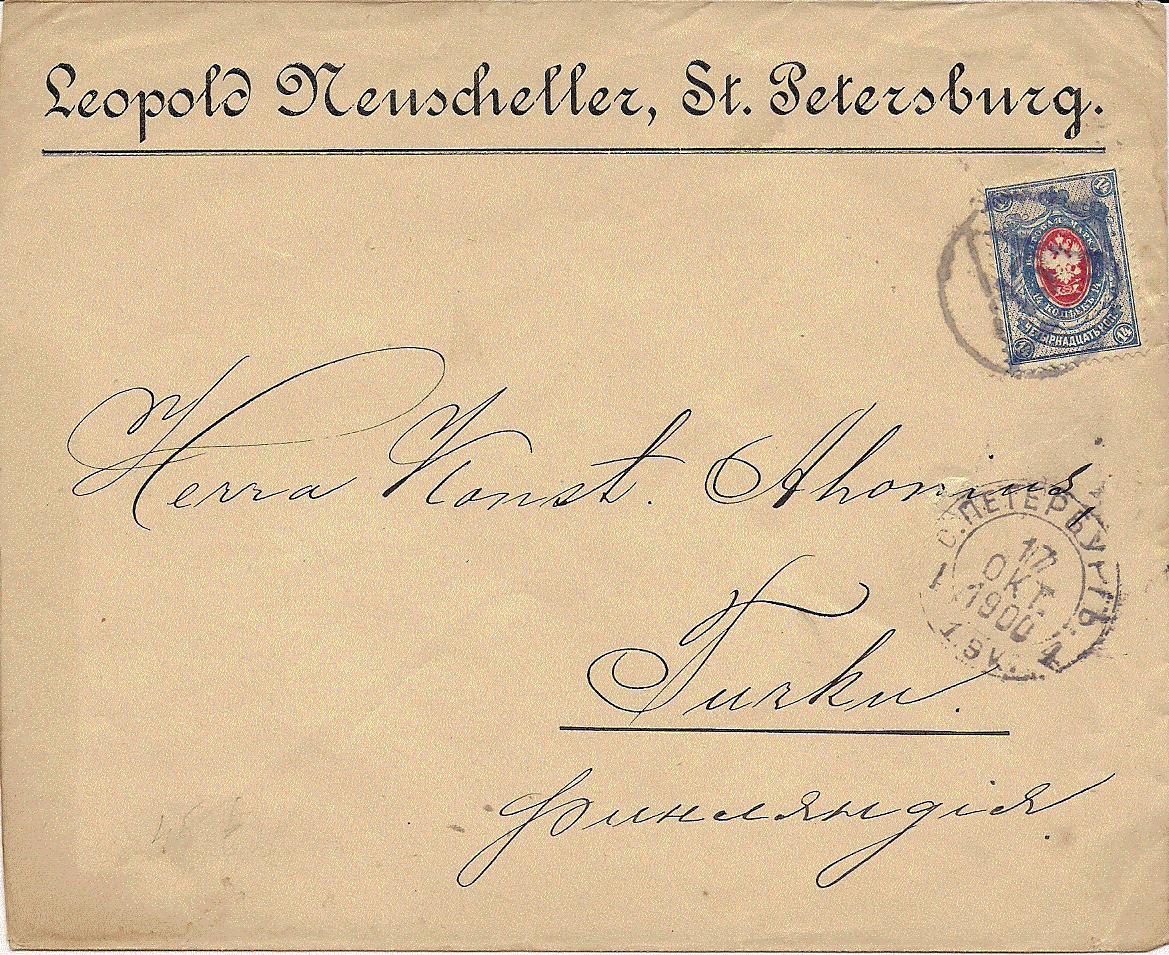 Leopold Neuscheller, St. Petersburg.
14 14
ПОЧТОВАЯ МАРКА
14 КОПѢЕКЪ 14
ЧЕТЫРНАДЦАТЬ КОП.
14 14
Herra Konst. Ahonius,
С.ПЕТЕРБУРГЪ
17
ОКТ.
1900
1
Turku.
Финляндія.